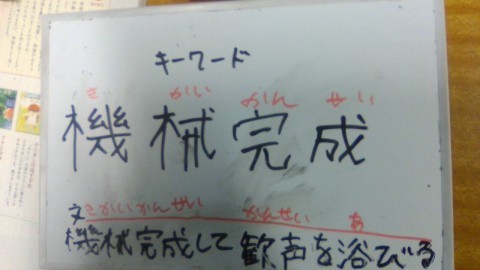 キーワード
き かい かん せい
機械完成
文 きかいかんせい かんせい あ
機械完成して歓声を浴びる